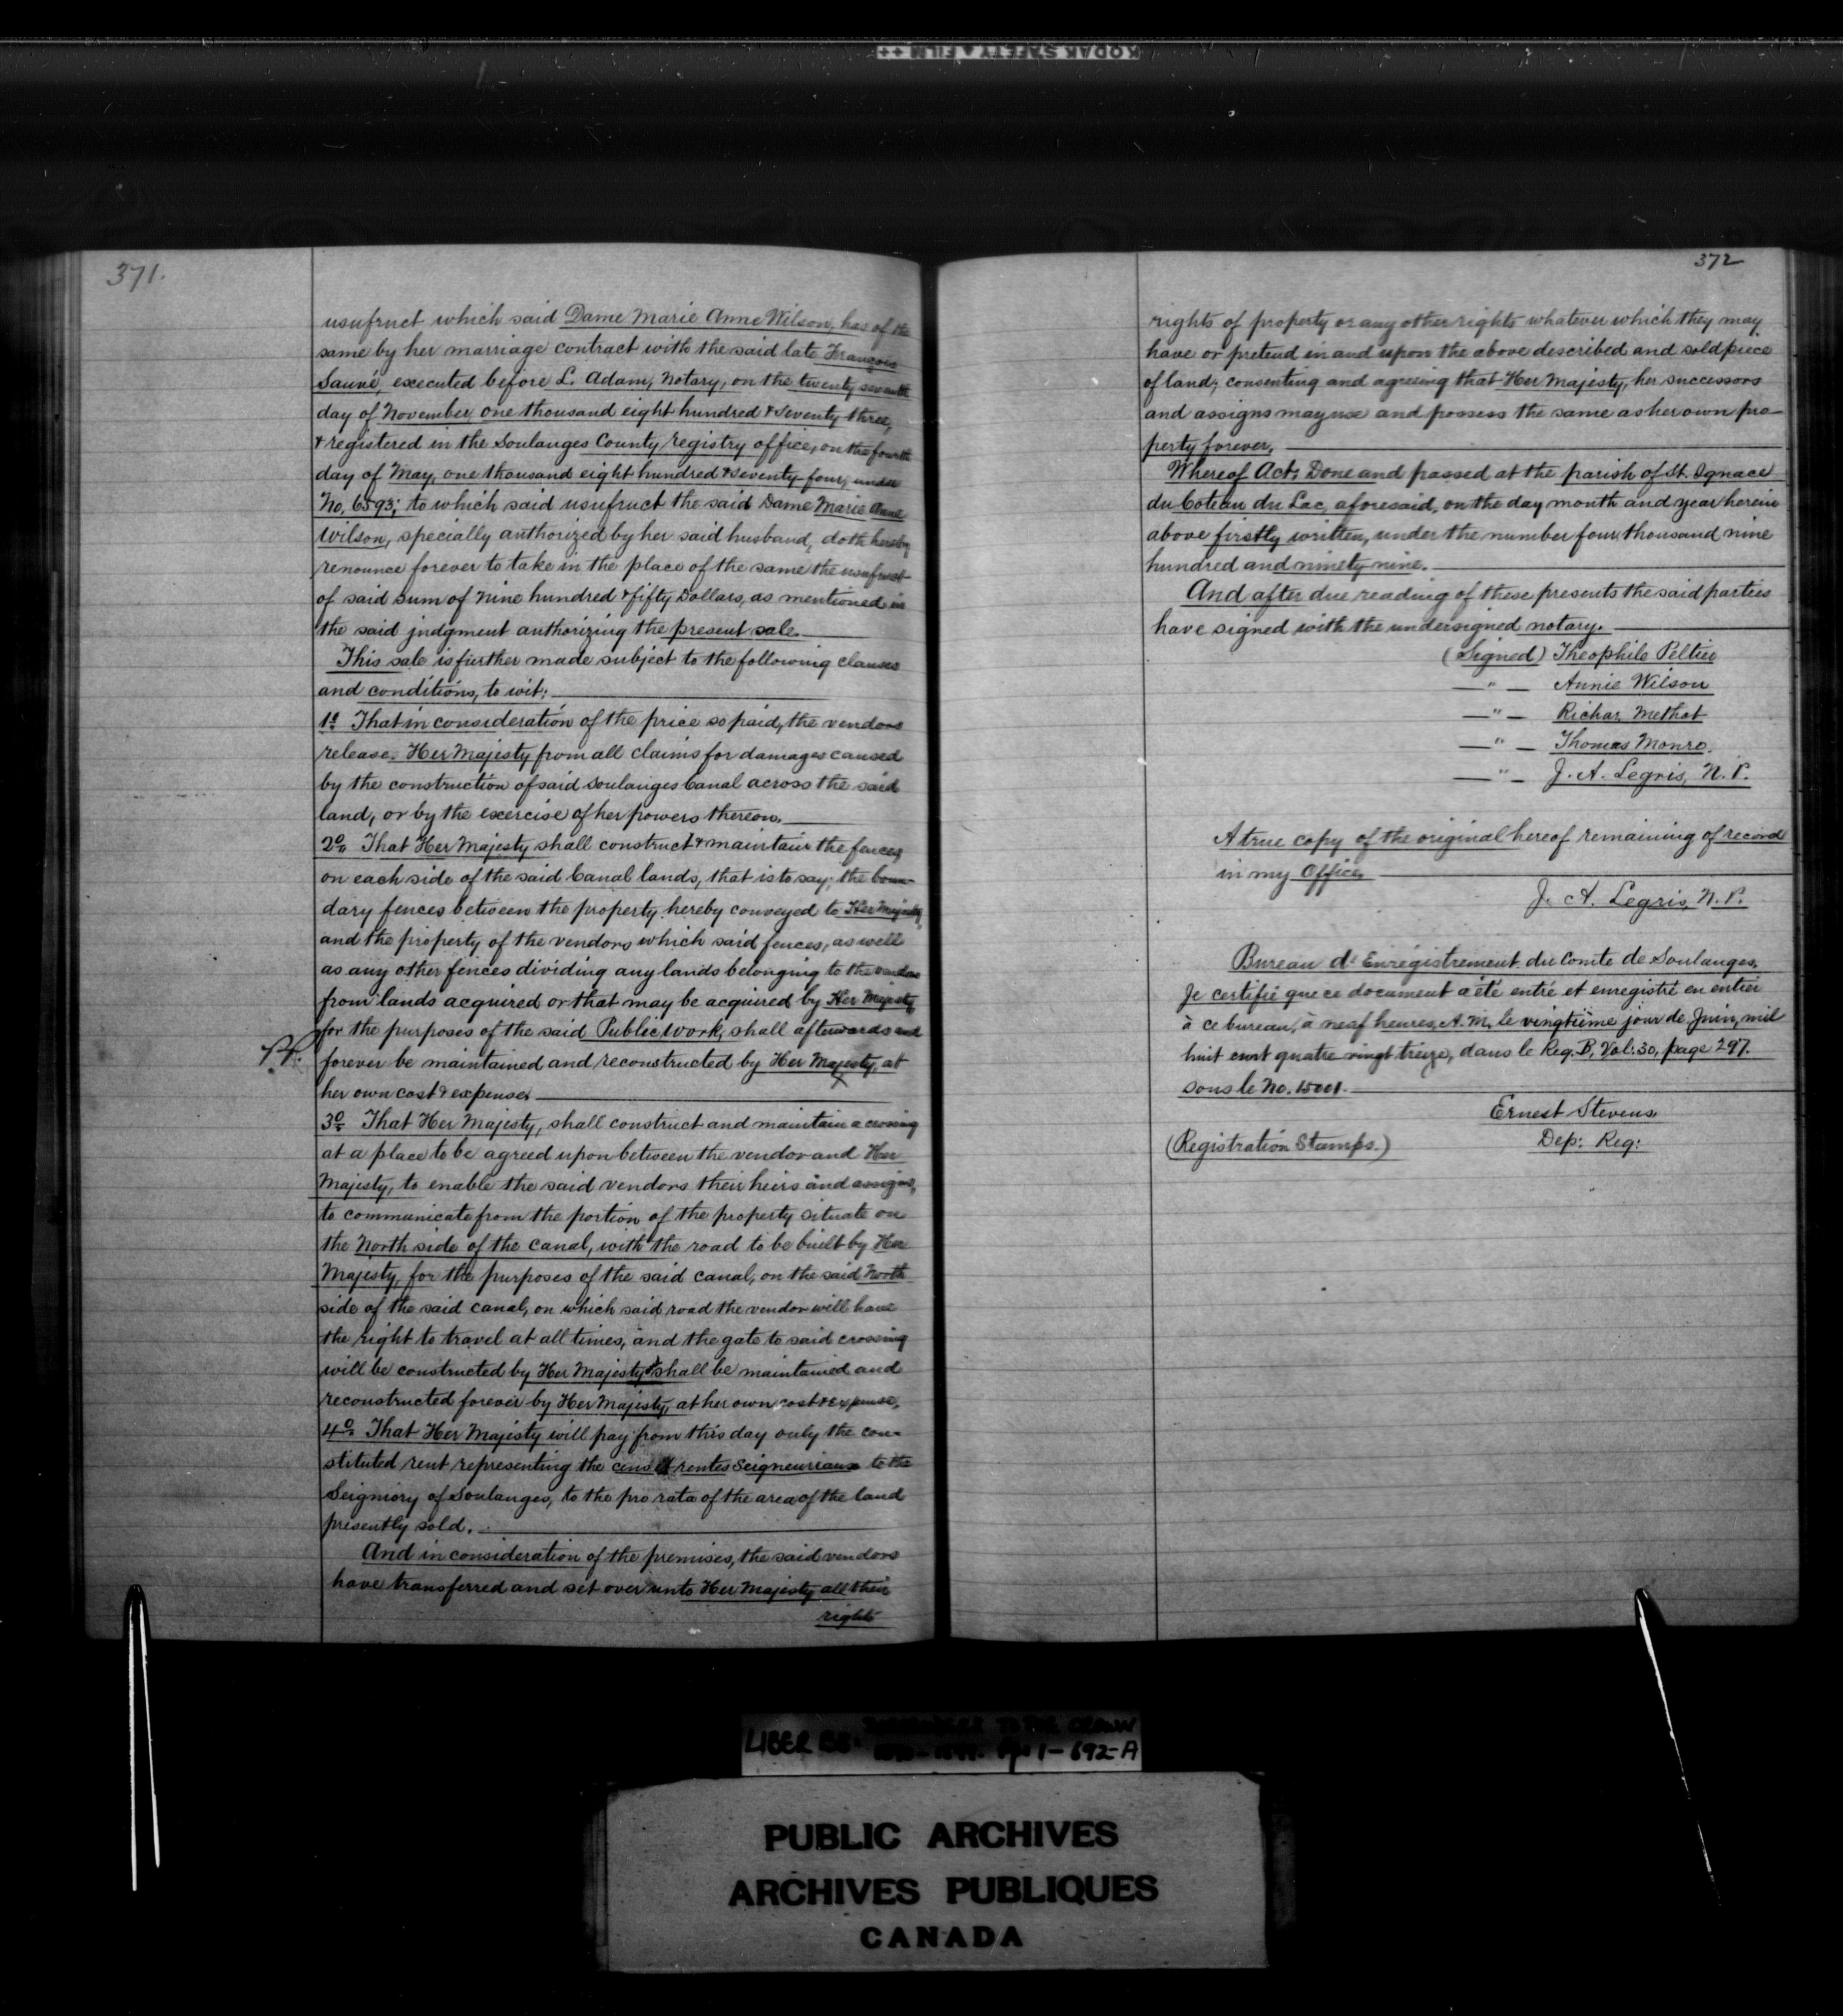 KODAK SAFETY FILM ++
371.
usufruct which said Dame Marie Anne Wilson, has of the
same by her marriage contract with the said late François
Sauvé, executed before L. Adam, Notary, on the twenty seventh
day of November, one thousand eight hundred & seventy three,
& registered in the Soulanges County registry office, on the fourth
day of May, one thousand eight hundred & seventy-four, under
No. 6593; to which said usufruct the said Dame Marie Anne
Wilson, specially authorized by her said husband, doth hereby
renounce forever to take in the place of the same the usufruct
of said sum of Nine hundred & fifty Dollars, as mentioned in
the said judgment authorizing the present sale.
This sale is further made subject to the following clauses
and conditions, to wit:
1o That in consideration of the price so paid, the vendors
release Her Majesty from all claims for damages caused
by the construction of said Soulanges Canal across the said
land, or by the exercise of her powers thereon.
2o That Her Majesty shall construct & maintain the fences
on each side of the said Canal lands, that is to say; the boun-
dary fences between the property hereby conveyed to Her Majesty,
and the property of the vendors which said fences, as well
as any other fences dividing any lands belonging to the vendors
from lands acquired or that may be acquired by Her Majesty,
for the purposes of the said Public Work, shall afterwards and
forever be maintained and reconstructed by Her Majesty, at
her own cost & expenses
3o That Her Majesty, shall construct and maintain a crossing
at a place to be agreed upon between the vendor and Her
Majesty, to enable the said vendors their heirs and assigns,
to communicate from the portion of the property situate on
the North side of the canal, with the road to be built by Her
Majesty, for the purposes of the said canal, on the said North
side of the said canal, on which said road the vendor will have
the right to travel at all times, and the gate to said crossing
will be constructed by Her Majesty & shall be maintained and
reconstructed forever by Her Majesty, at her own cost & expense,
4o That Her Majesty will pay from this day only the con-
stituted rent representing the cens et rentes Seigneuriaux to the
Seigniory of Soulanges, to the pro rata of the area of the land
presently sold.
And in consideration of the premises, the said vendors
have transferred and set over unto Her Majesty all their
rights
372
rights of property or any other rights whatever which they may
have or pretend in and upon the above described and sold piece
of land; consenting and agreeing that Her Majesty, her successors
and assigns may use and possess the same as her own pro-
perty forever,
Whereof Act; Done and passed at the parish of St. Ignace
du Coteau du Lac, aforesaid, on the day month and year herein
above firstly written, under the number four thousand nine
hundred and ninety-nine.
And after due reading of these presents the said parties
have signed with the undersigned notary.
(Signed) Theophile Peltier
" Annie Wilson
" Richar Methot
" Thomas Monro.
" J. A. Legris, N. P.
A true copy of the original hereof remaining of record
in my Office
J. A. Legris, N. P.
Bureau d'Enrégistrement du Comte de Soulanges.
Je certifie que ce document a été entré et enregistré en entier
à ce bureau, à neuf heures, A. M, le vingtième jour de Juin, mil
huit cent quatre vingt treize, dans le Reg. B, Vol: 30, page 297.
sous le No. 15001.
Ernest Stevens
Dep: Reg:
(Registration Stamps.)
TO THE CROWN
LIBER 1-692-A
PUBLIC ARCHIVES
ARCHIVES PUBLIQUES
CANADA